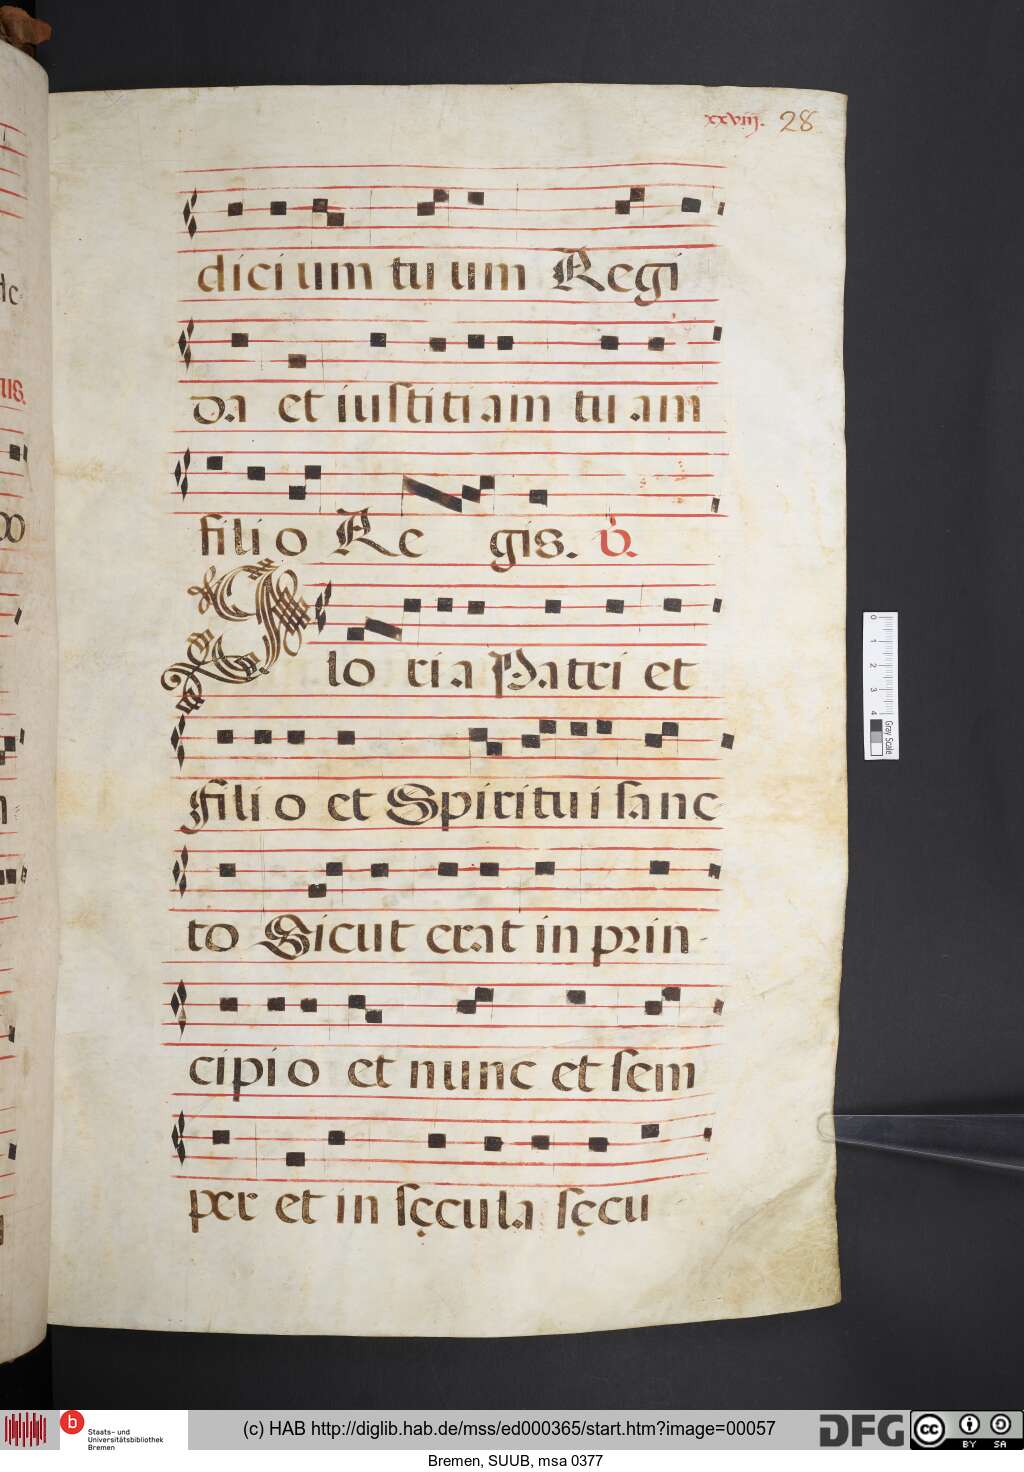 xxviij. 28
dicium tuum Regi
da et iuſtitiam tuam
filio Regis. V.
Gloria Patri et
Filio et Spiritui ſanc
to Sicut erat in prin-
cipio et nunc et ſem
per et in ſęcula ſęcu
us.
0 1 2 3 4
Gray Scale
b Staats- und
Universitätsbibliothek
Bremen
(c) HAB http://diglib.hab.de/mss/ed000365/start.htm?image=00057
DFG
cc BY SA
Bremen, SUUB, msa 0377